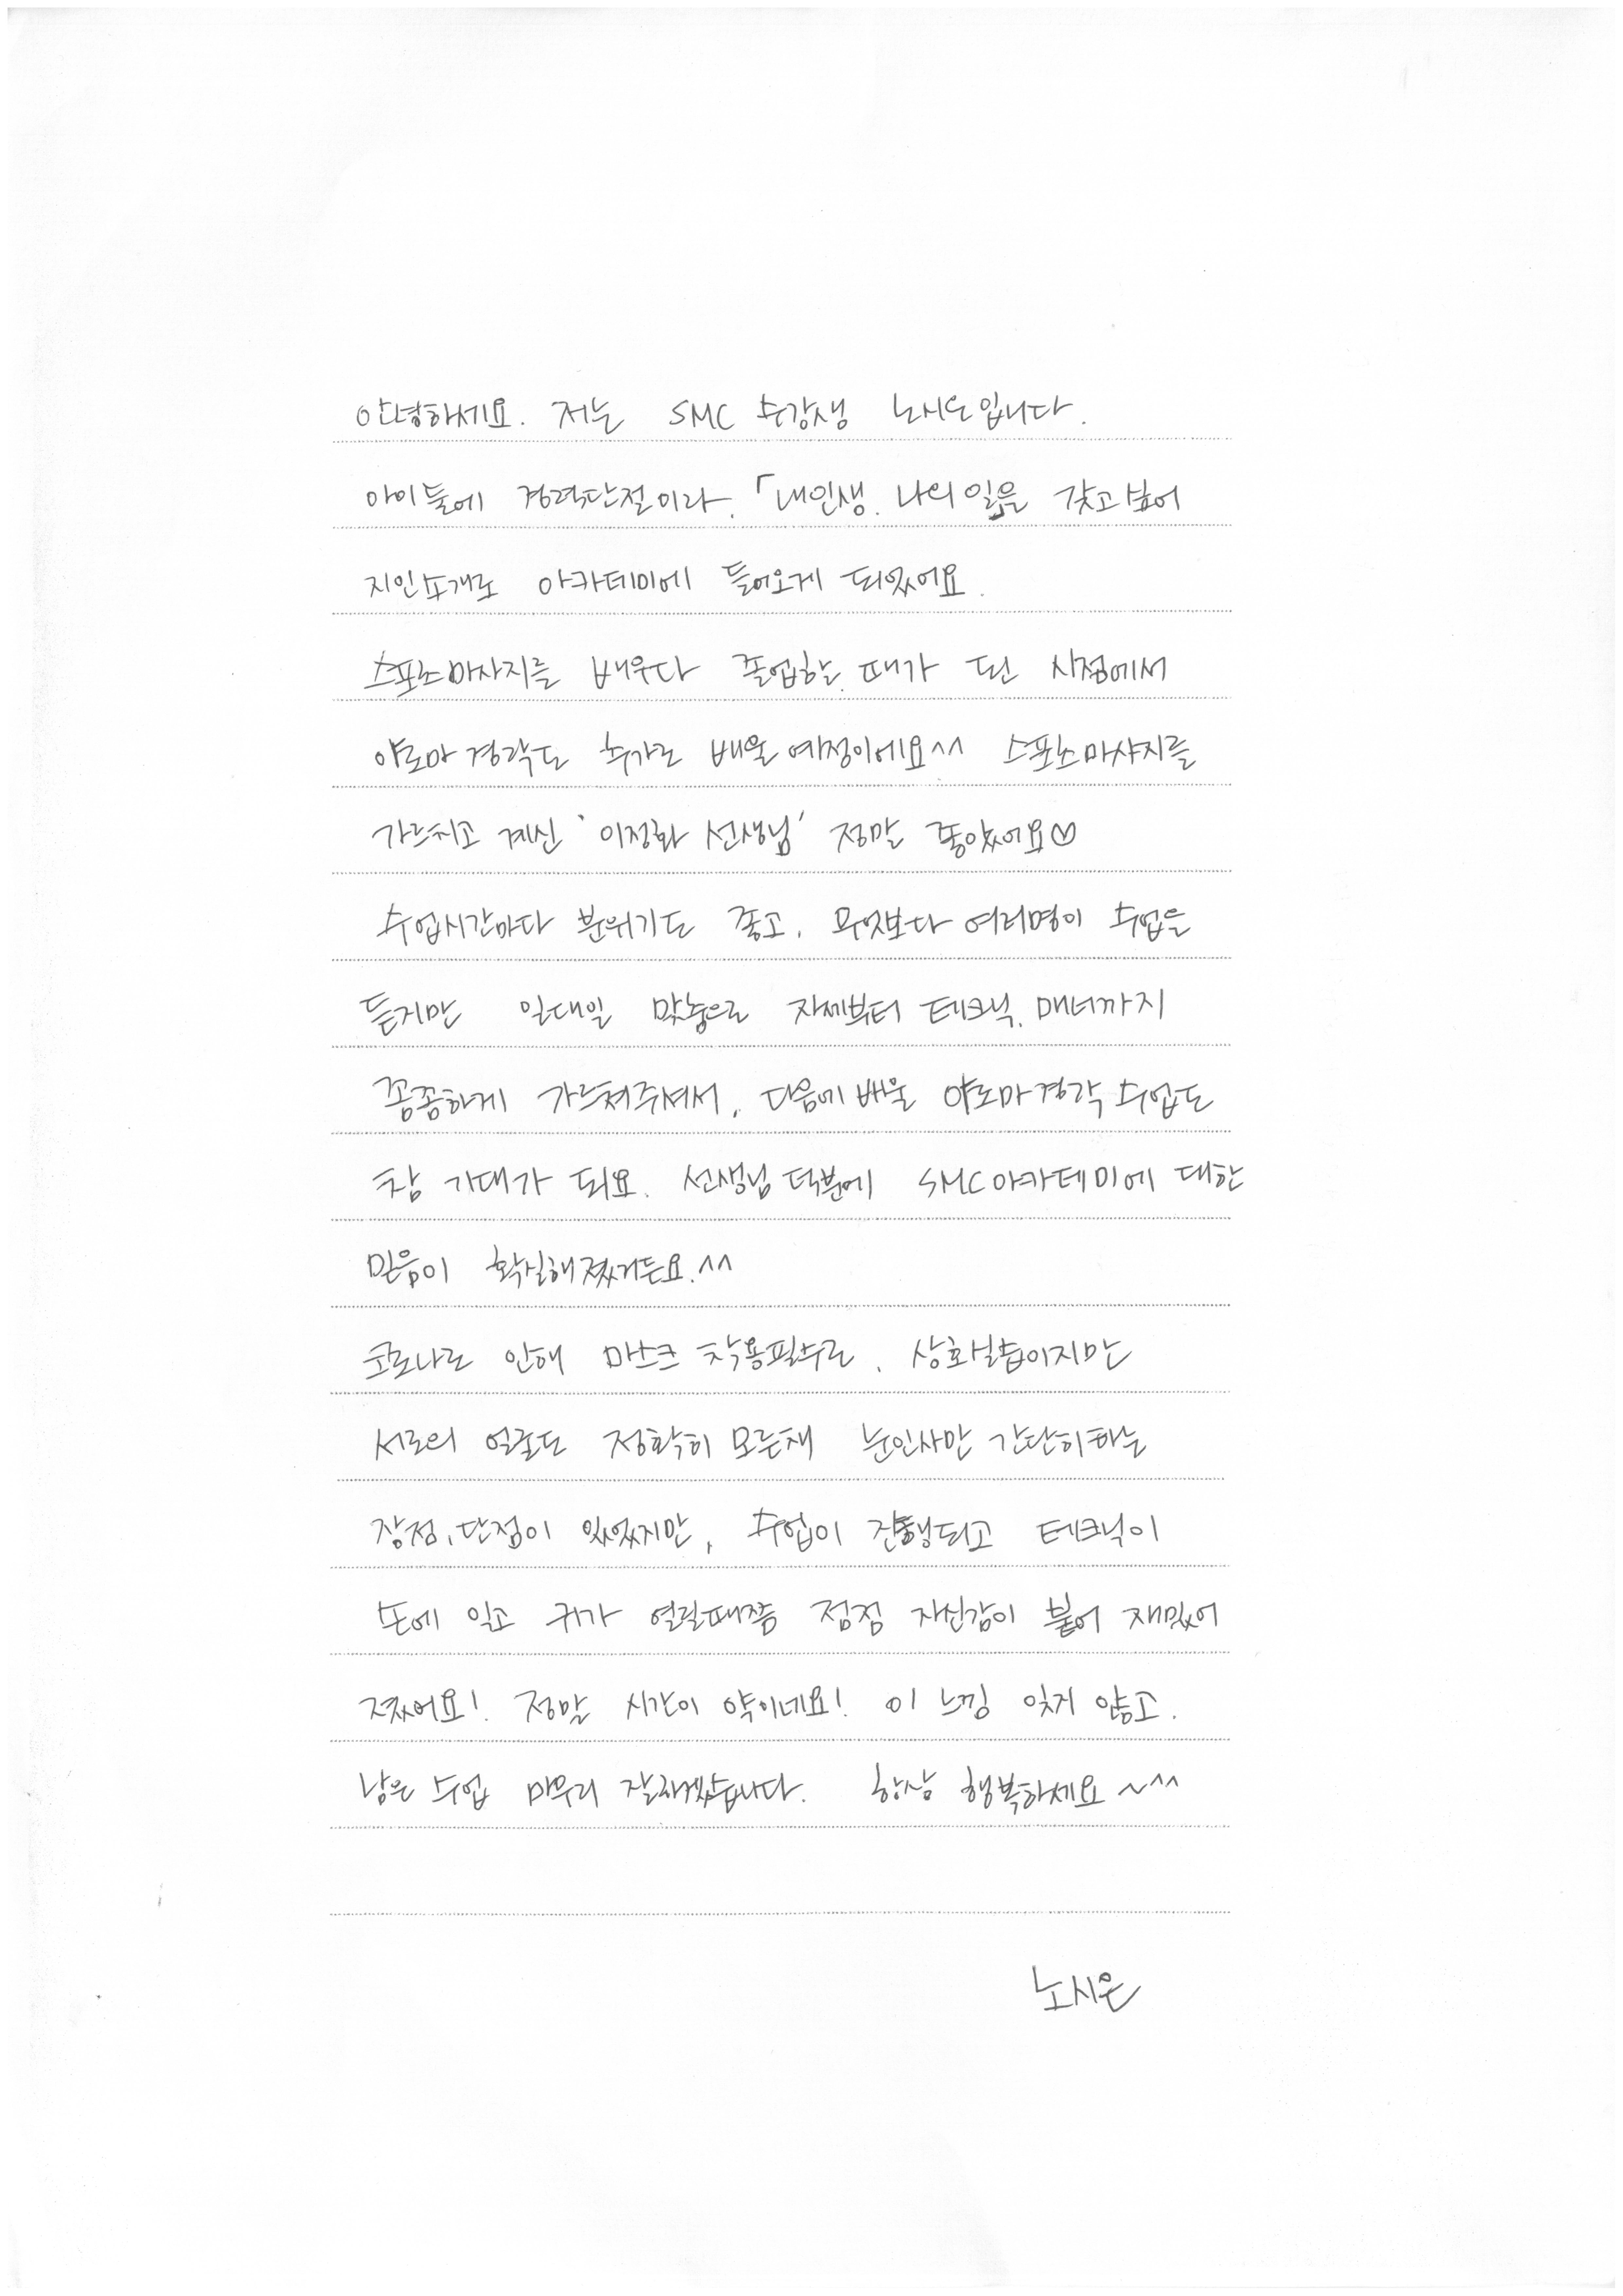 안녕하세요. 저는 SMC 수강생 노시은입니다.
아이 둘에 경력단절이라. 「내인생. 나의 일」을 갖고 싶어
지인소개로 아카데미에 들어오게 되었어요.
스포츠마사지를 배우다 졸업할 때가 된 시점에서
아로마 경락도 추가로 배울 예정이에요^^ 스포츠마사지를
가르치고 계신 '이정화 선생님' 정말 좋았어요♡
수업시간마다 분위기도 좋고, 무엇보다 여러명이 수업을
듣지만 일대일 맞춤으로 자세부터 테크닉, 매너까지
꼼꼼하게 가르쳐주셔서, 다음에 배울 아로마경락 수업도
참 기대가 되요. 선생님 덕분에 SMC아카데미에 대한
믿음이 확실해졌거든요.^^
코로나로 인해 마스크 착용필수로, 상호실습이지만
서로의 얼굴도 정확히 모른채 눈인사만 간단히하는
장점, 단점이 있었지만, 수업이 진행되고 테크닉이
손에 익고 귀가 열릴때쯤 점점 자신감이 붙어 재밌어
졌어요! 정말 시간이 약이네요! 이 느낌 잊지 않고.
남은 수업 마무리 잘하겠습니다. 항상 행복하세요~^^
노시은